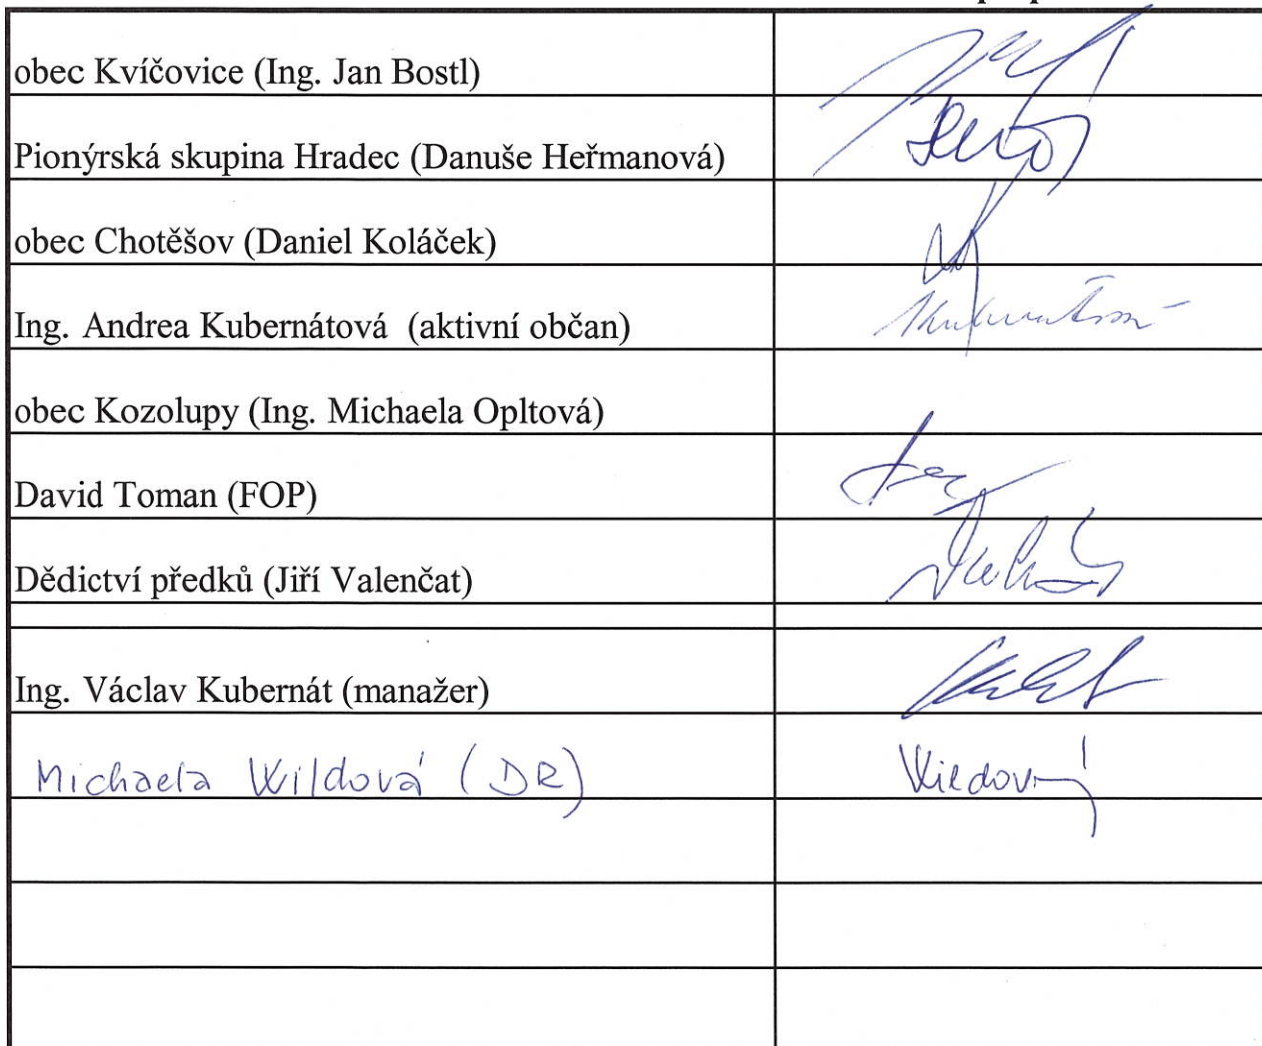 obec Kvíčovice (Ing. Jan Bostl)
Pionýrská skupina Hradec (Danuše Heřmanová)
obec Chotěšov (Daniel Koláček)
Ing. Andrea Kubernátová (aktivní občan)
obec Kozolupy (Ing. Michaela Opltová)
David Toman (FOP)
Dědictví předků (Jiří Valenčat)
Ing. Václav Kubernát (manažer)
Michaela Wildová (DR) Wildová